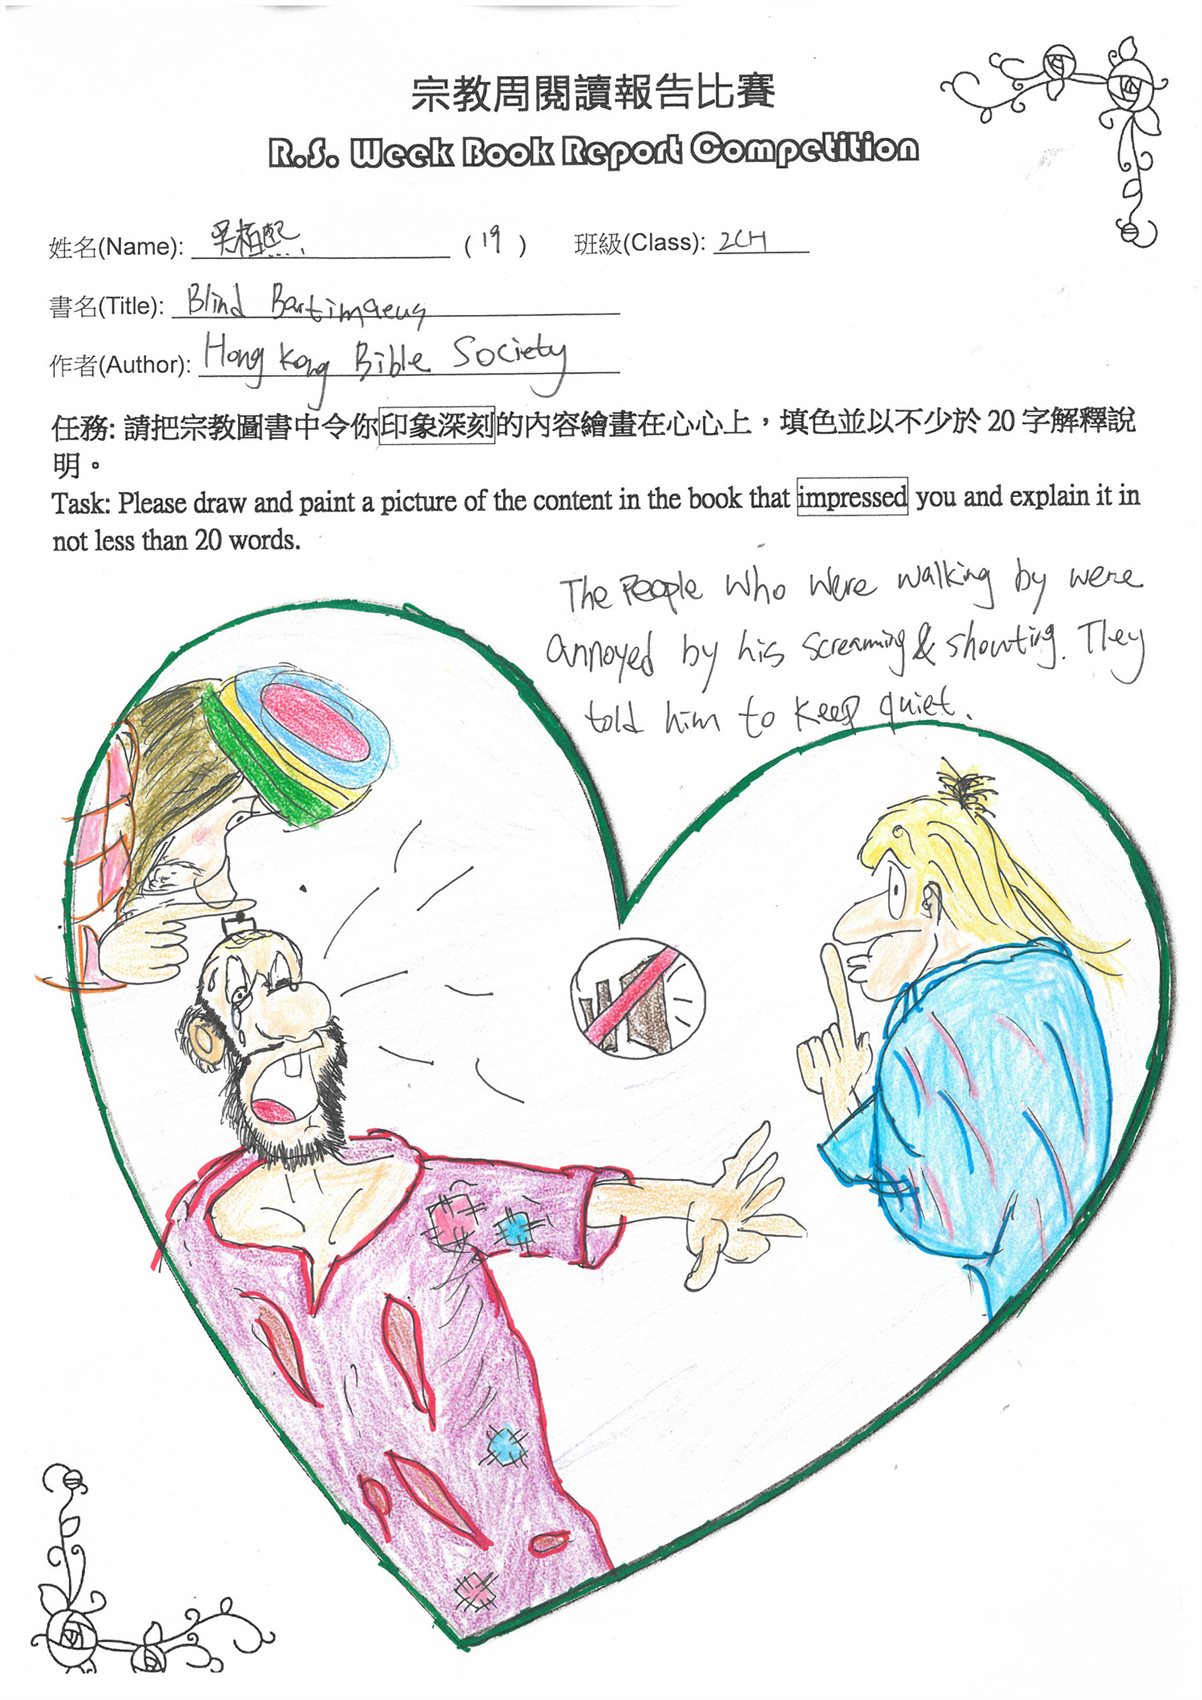 宗教周閱讀報告比賽
R.S. Week Book Report Competition
姓名(Name): 吳栢熙 ( 19 ) 班級(Class): 2CH
書名(Title): Blind Bartimaeus
作者(Author): Hong Kong Bible Society
任務: 請把宗教圖書中令你印象深刻的內容繪畫在心心上，填色並以不少於 20 字解釋說
明。
Task: Please draw and paint a picture of the content in the book that impressed you and explain it in
not less than 20 words.
The People who were walking by were
annoyed by his screaming & shouting. They
told him to keep quiet.